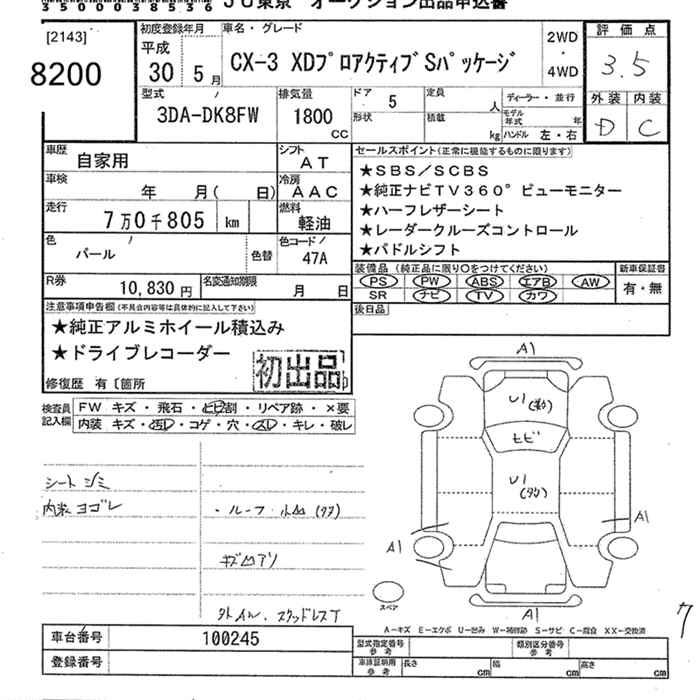 35000038536 JU東京 オークション出品申込書
[2143]
8200
初度登録年月
平成
30 5月
車名・グレード
CX-3 XDプロアクティブSパッケージ
2WD
4WD
評価点
3.5
型式
3DA-DK8FW
排気量
1800
CC
ドア 5
形状
定員 人
積載 kg
ディーラー・並行
モデル年式 年
ハンドル 左・右
外装 内装
D C
車歴 自家用
シフト AT
車検 年 月( 日)
冷房 AAC
走行 7万0千805 km
燃料 軽油
色 パール 色替
色コード 47A
R券 10,830円
名変通知期限 月 日
セールスポイント(正常に機能するものに限ります)
★SBS/SCBS
★純正ナビTV360°ビューモニター
★ハーフレザーシート
★レーダークルーズコントロール
★パドルシフト
装備品 (純正品に限り○をつけてください)
PS PW ABS エアB AW
SR ナビ TV カワ
新車保証書
有・無
後日品
注意事項申告欄(不具合内容等は具体的に記入して下さい)
★純正アルミホイール積込み
★ドライブレコーダー
初出品
修復歴 有〔箇所
検査員記入欄
FW キズ・飛石・ヒビ割・リペア跡・×要
内装 キズ・汚レ・コゲ・穴・スレ・キレ・破レ
シートシミ
内装ヨゴレ
・ルーフ 小凹(タタ)
キズ凹アリ
外AW、スタッドレスT
A1
U1
ヒビ
U1
(タタ)
A1
A1
A1
スペア
7
A-キズ E-エクボ U-凹み W-補修跡 S-サビ C-腐食 XX-交換済
車台番号 100245
登録番号
型式指定番号 参考
類別区分番号 参考
車庫証明用 参考
長さ cm 幅 cm 高さ cm